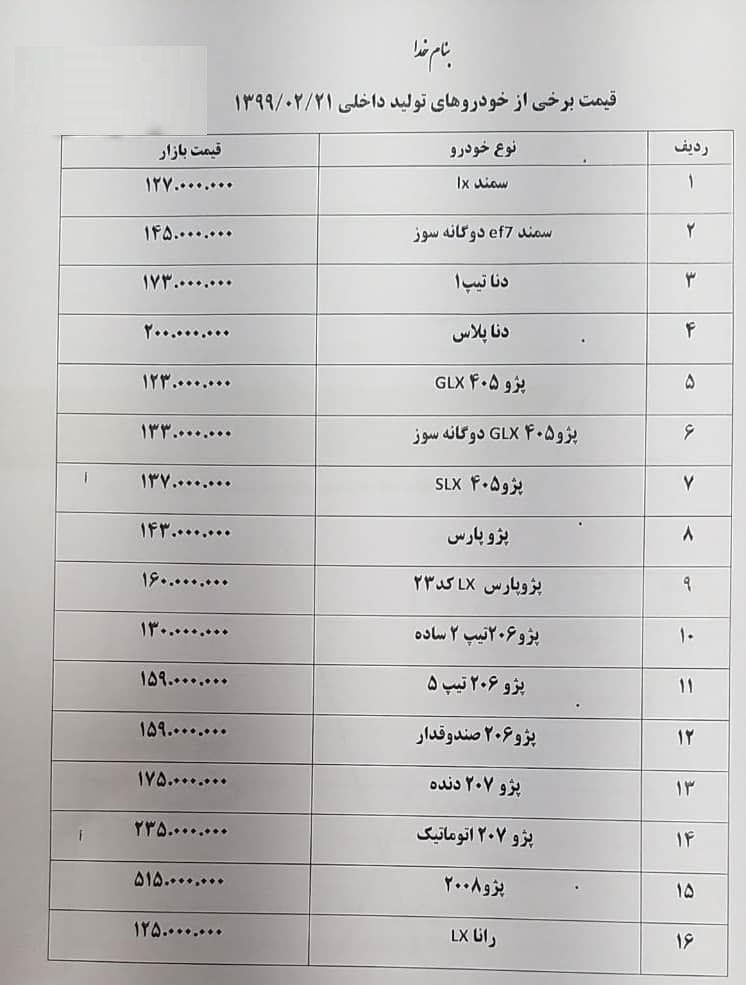 بنام خدا
قیمت برخی از خودروهای تولید داخلی ۱۳۹۹/۰۲/۲۱
ردیف نوع خودرو قیمت بازار
۱ سمند lx ۱۲۷.۰۰۰.۰۰۰
۲ سمند ef7 دوگانه سوز ۱۴۵.۰۰۰.۰۰۰
۳ دنا تیپ۱ ۱۷۳.۰۰۰.۰۰۰
۴ دنا پلاس ۲۰۰.۰۰۰.۰۰۰
۵ پژو ۴۰۵ GLX ۱۲۳.۰۰۰.۰۰۰
۶ پژو۴۰۵ GLX دوگانه سوز ۱۳۳.۰۰۰.۰۰۰
۷ پژو۴۰۵ SLX ۱۳۷.۰۰۰.۰۰۰
۸ پژو پارس ۱۴۳.۰۰۰.۰۰۰
۹ پژوپارس LX کد۲۳ ۱۶۰.۰۰۰.۰۰۰
۱۰ پژو۲۰۶تیپ ۲ ساده ۱۳۰.۰۰۰.۰۰۰
۱۱ پژو ۲۰۶ تیپ ۵ ۱۵۹.۰۰۰.۰۰۰
۱۲ پژو۲۰۶ صندوقدار ۱۵۹.۰۰۰.۰۰۰
۱۳ پژو ۲۰۷ دنده ۱۷۵.۰۰۰.۰۰۰
۱۴ پژو ۲۰۷ اتوماتیک ۲۳۵.۰۰۰.۰۰۰
۱۵ پژو۲۰۰۸ ۵۱۵.۰۰۰.۰۰۰
۱۶ رانا LX ۱۲۵.۰۰۰.۰۰۰